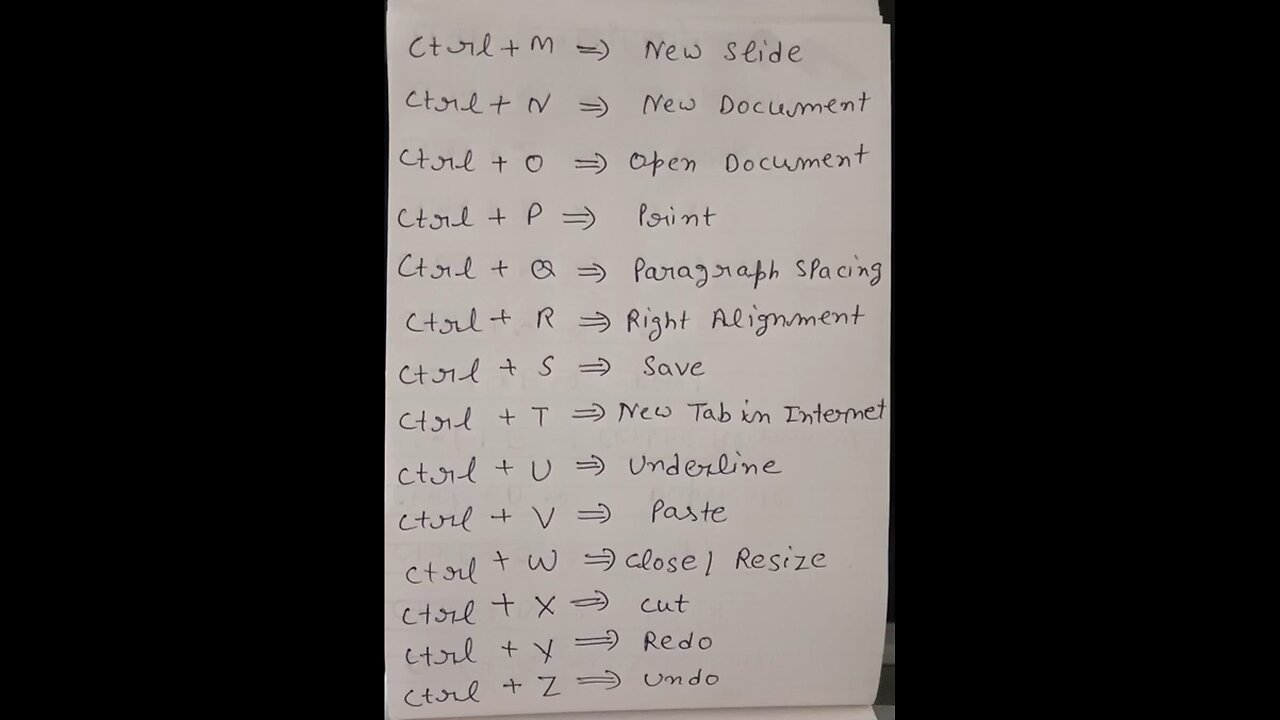 Ctrl + M ⇒ New Slide
Ctrl + N ⇒ New Document
Ctrl + O ⇒ Open Document
Ctrl + P ⇒ Print
Ctrl + Q ⇒ Paragraph Spacing
Ctrl + R ⇒ Right Alignment
Ctrl + S ⇒ Save
Ctrl + T ⇒ New Tab in Internet
Ctrl + U ⇒ Underline
Ctrl + V ⇒ Paste
Ctrl + W ⇒ Close / Resize
Ctrl + X ⇒ Cut
Ctrl + Y ⇒ Redo
Ctrl + Z ⇒ Undo